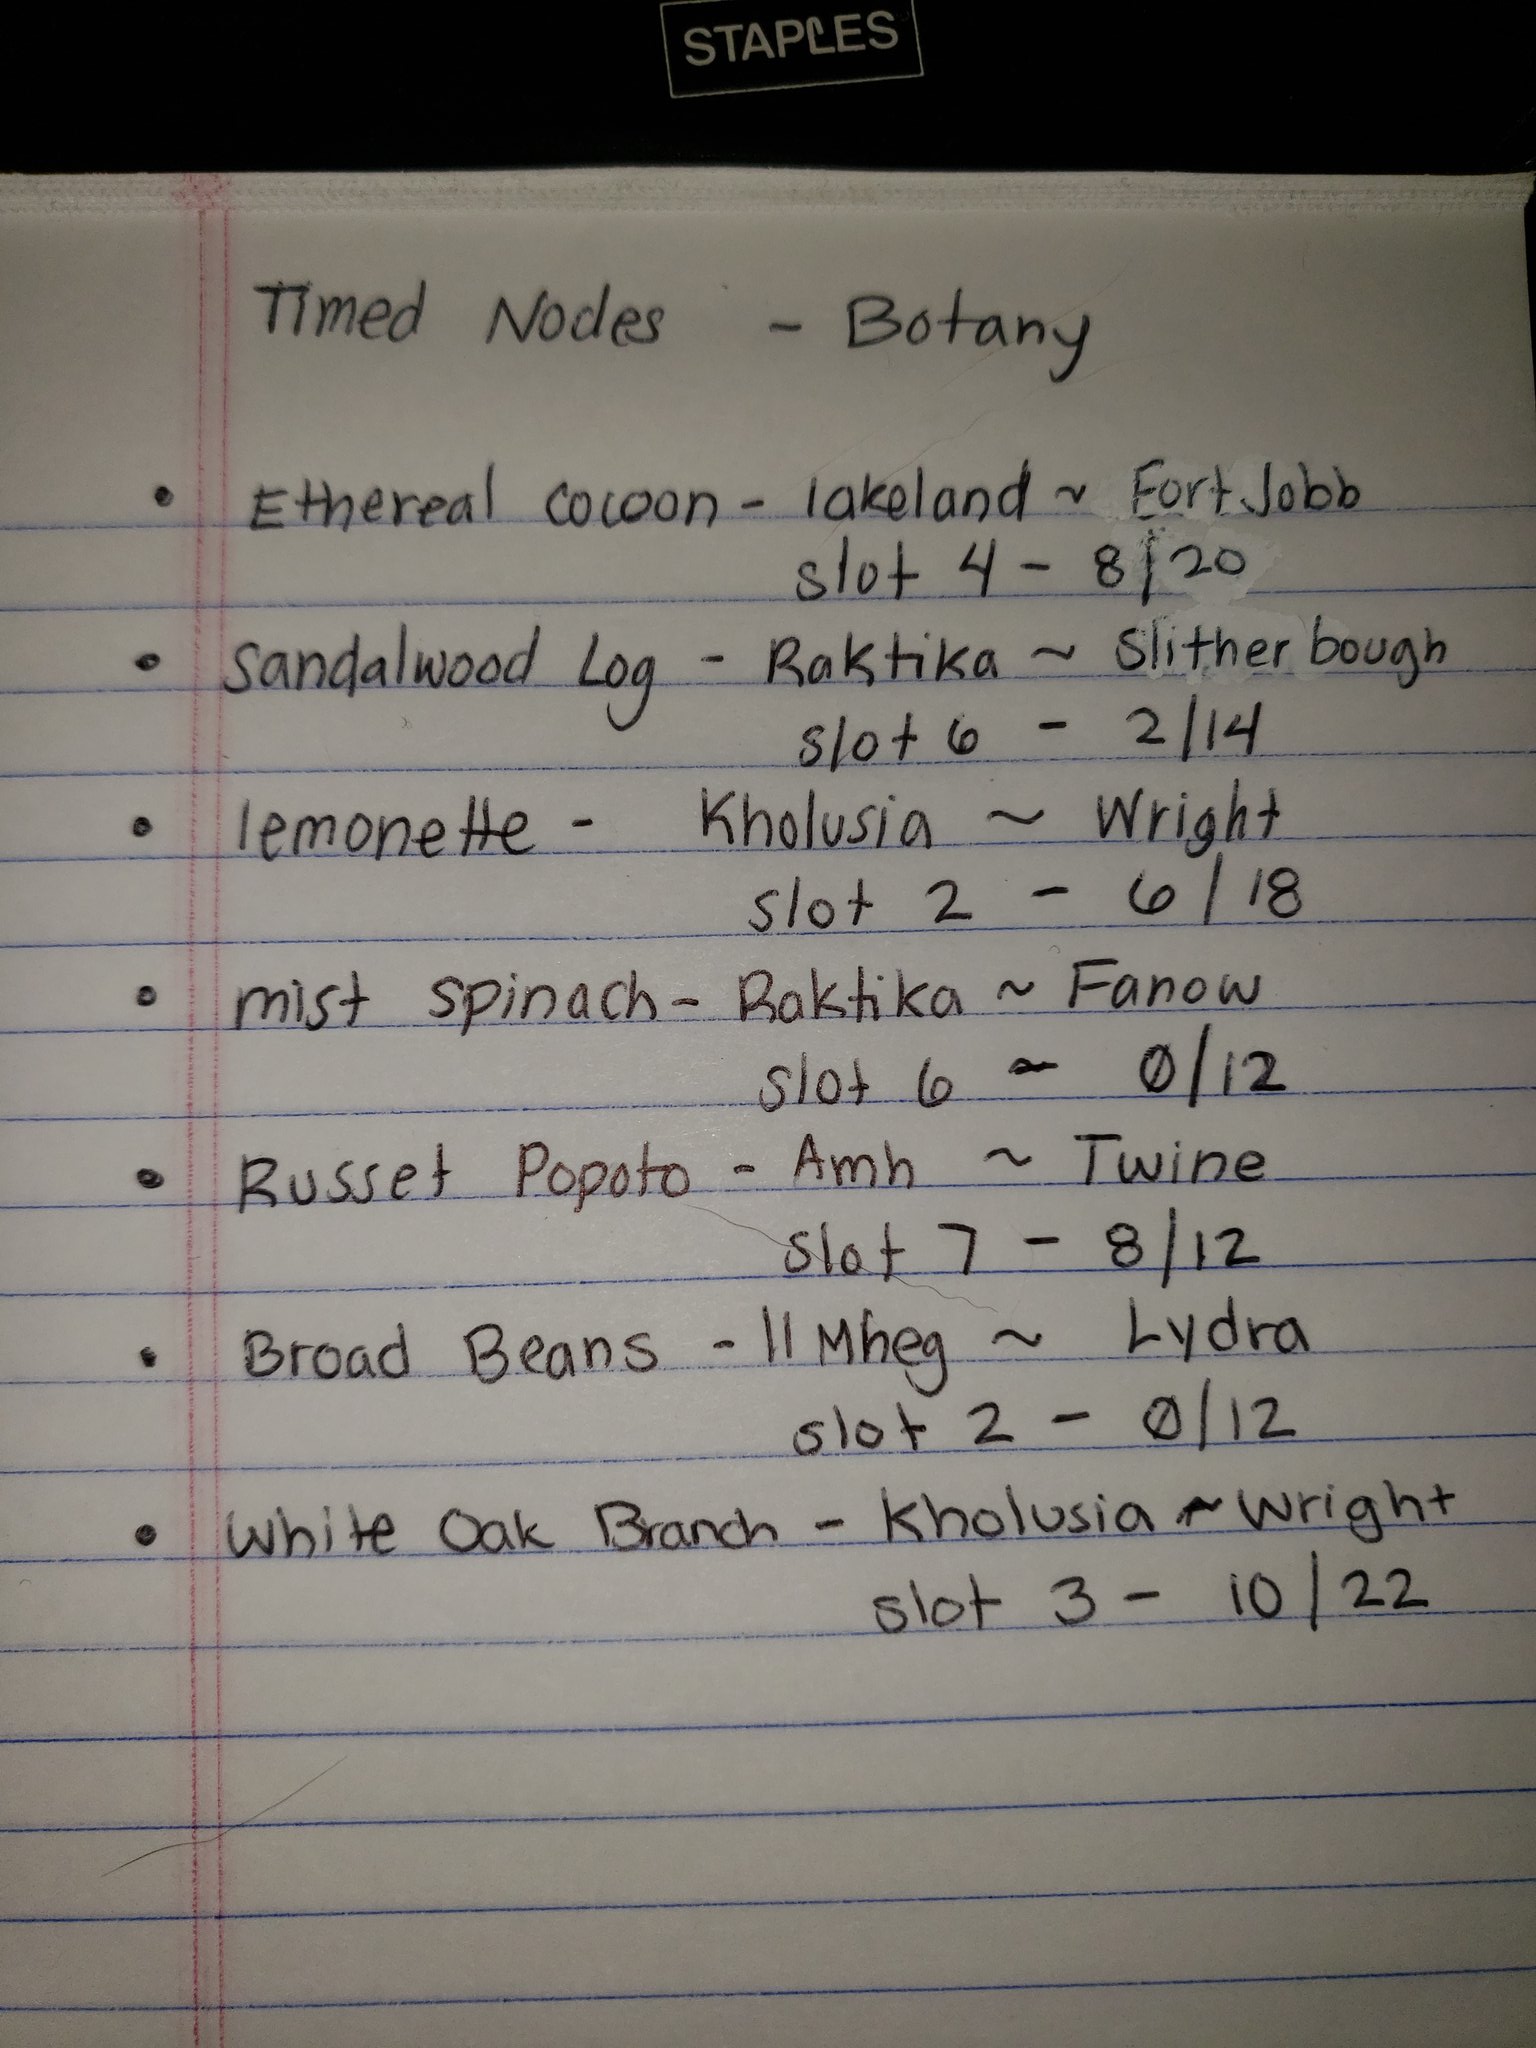 STAPLES
Timed Nodes - Botany
• Ethereal cocoon - lakeland ~ Fort Jobb
slot 4 - 8/20
• Sandalwood Log - Raktika ~ Slither bough
slot 6 - 2/14
• lemonette - Kholusia ~ Wright
slot 2 - 6/18
• mist spinach - Raktika ~ Fanow
slot 6 - 0/12
• Russet Popoto - Amh ~ Twine
slot 7 - 8/12
• Broad Beans - Il Mheg ~ Lydra
slot 2 - 0/12
• White Oak Branch - Kholusia ~ Wright
slot 3 - 10/22